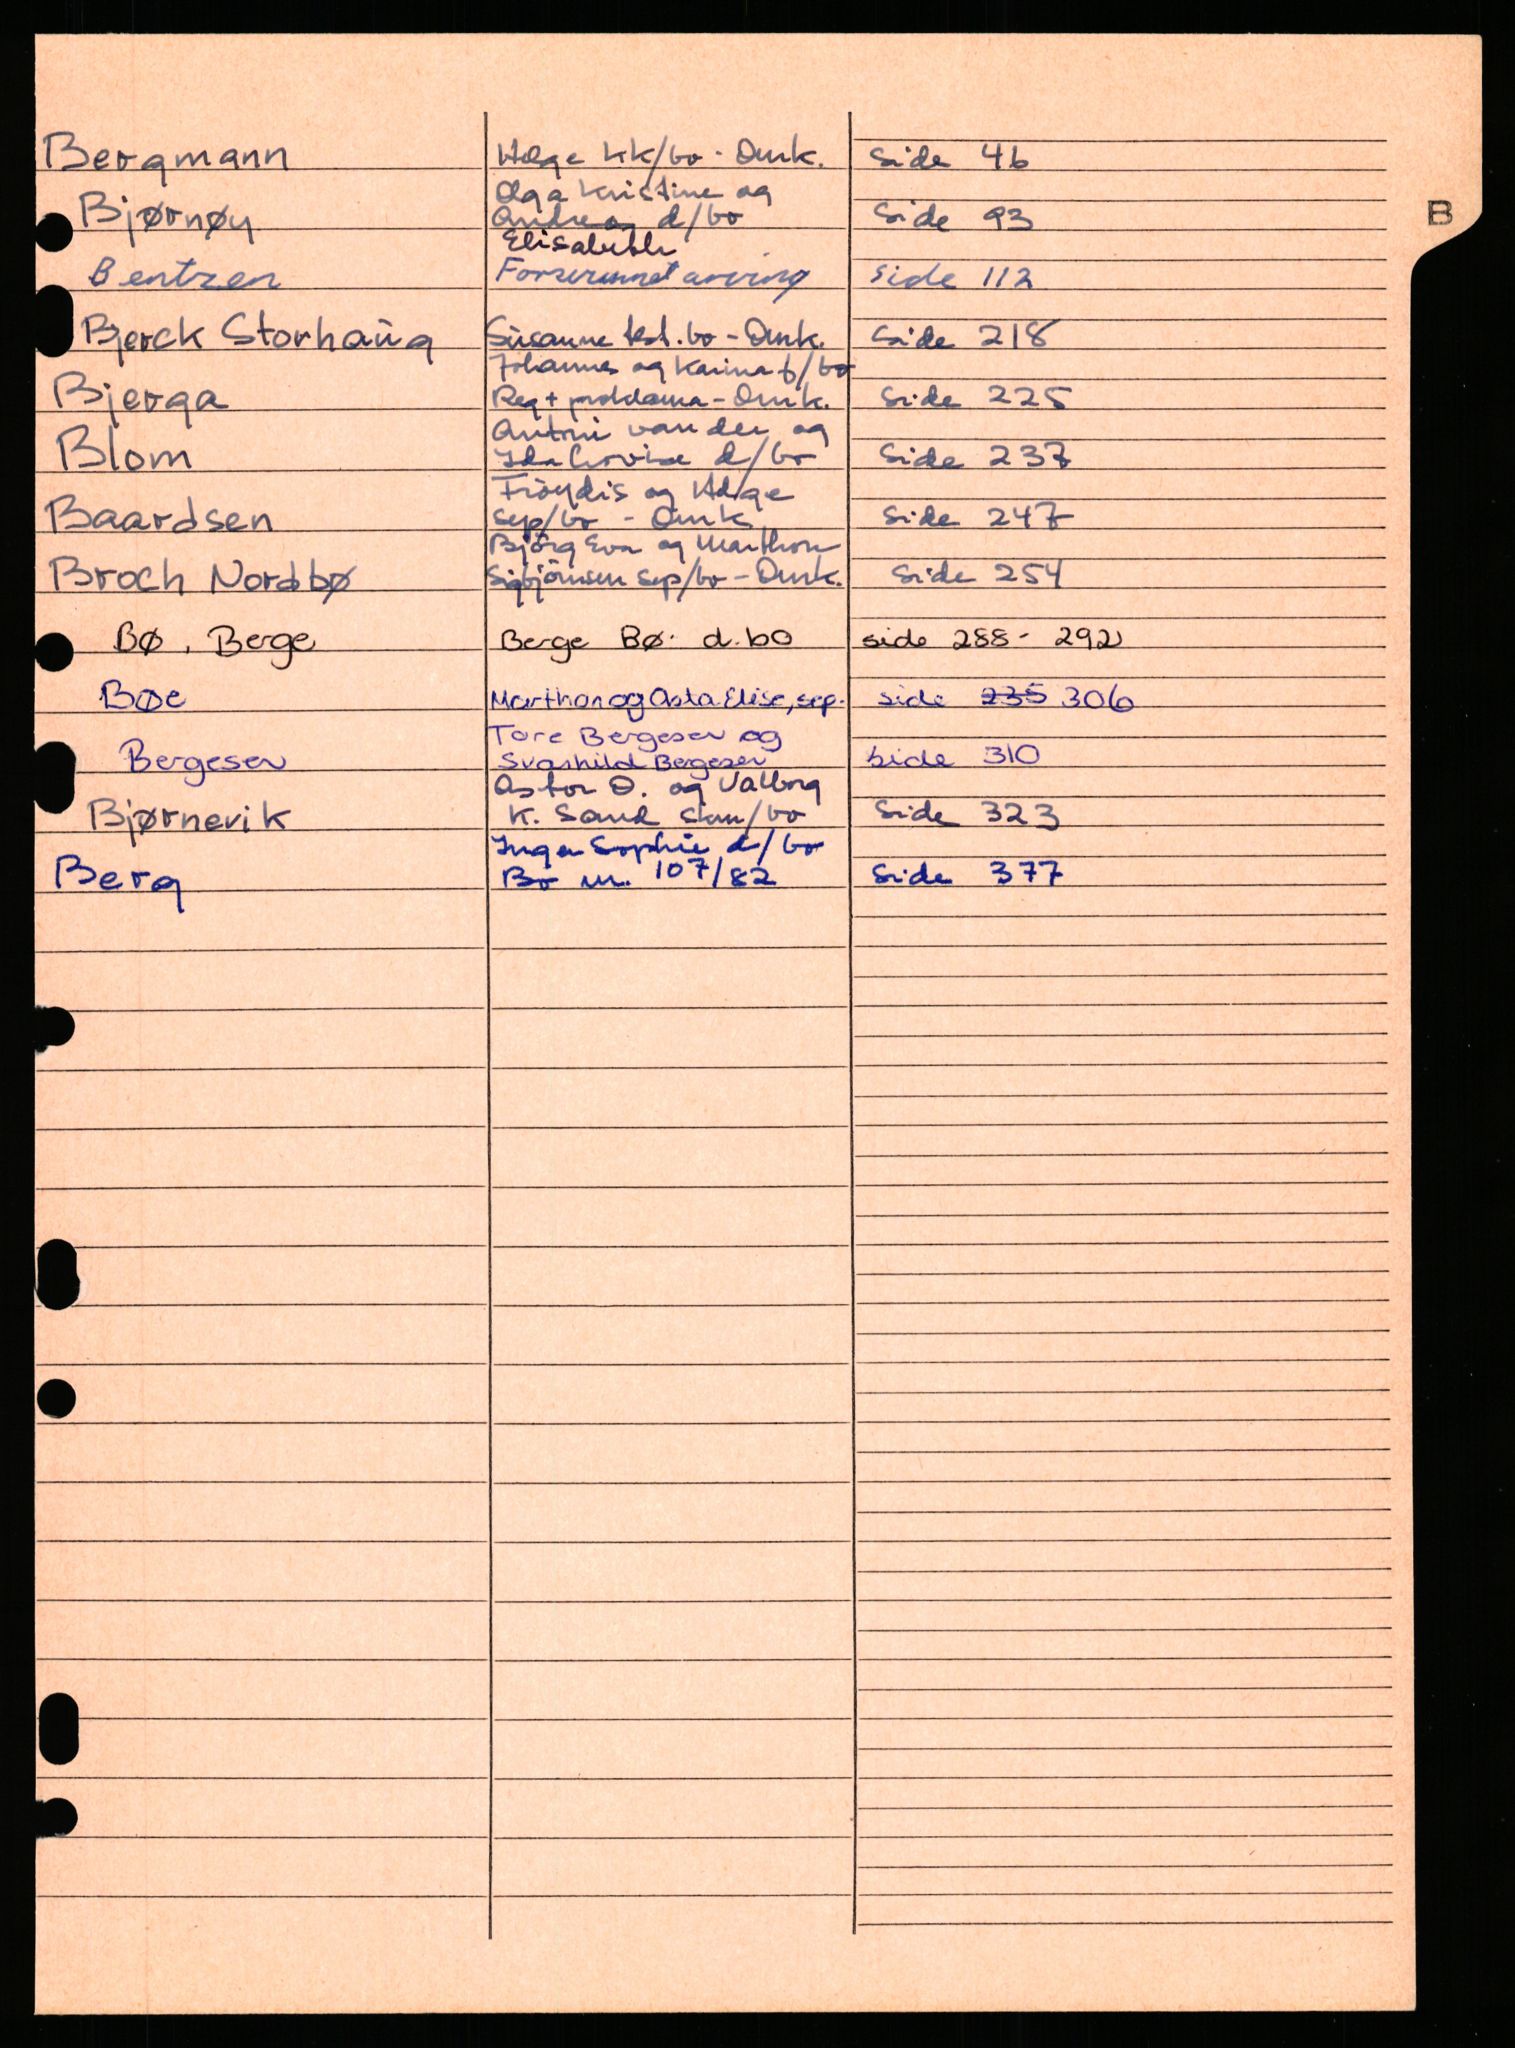 B
Bergmann Helge KK/bo - Omk. side 46
Olga Kristine og
Bjørnøy Andrea d/bo side 93
Elisabeth
Bentzen Forsvunnet arving side 112
Bjerck Storhaug Susanne test.bo - Omk. side 218
Johannes og Karina f/bo
Bjerga Reg + proklama - Omk. side 225
Antoni van der og
Blom Ida Lovise d/bo side 237
Frøydis og Helge
Baardsen sep/bo - Omk side 247
Bjørg Eva og Marthon
Broch Nordbø Sigbjørnsen sep/bo - Omk. side 254
Bø, Berge Berge Bø d.bo side 288 - 292
Bøe Marthon og Asta Elise, sep. side 235 306
Tore Bergesen og
Bergesen Svanhild Bergesen side 310
Astor O. og Valborg
Bjørnevik K. Sand skm/bo side 323
Inga Sophie d/bo
Berg Bo nr. 107/82 side 377